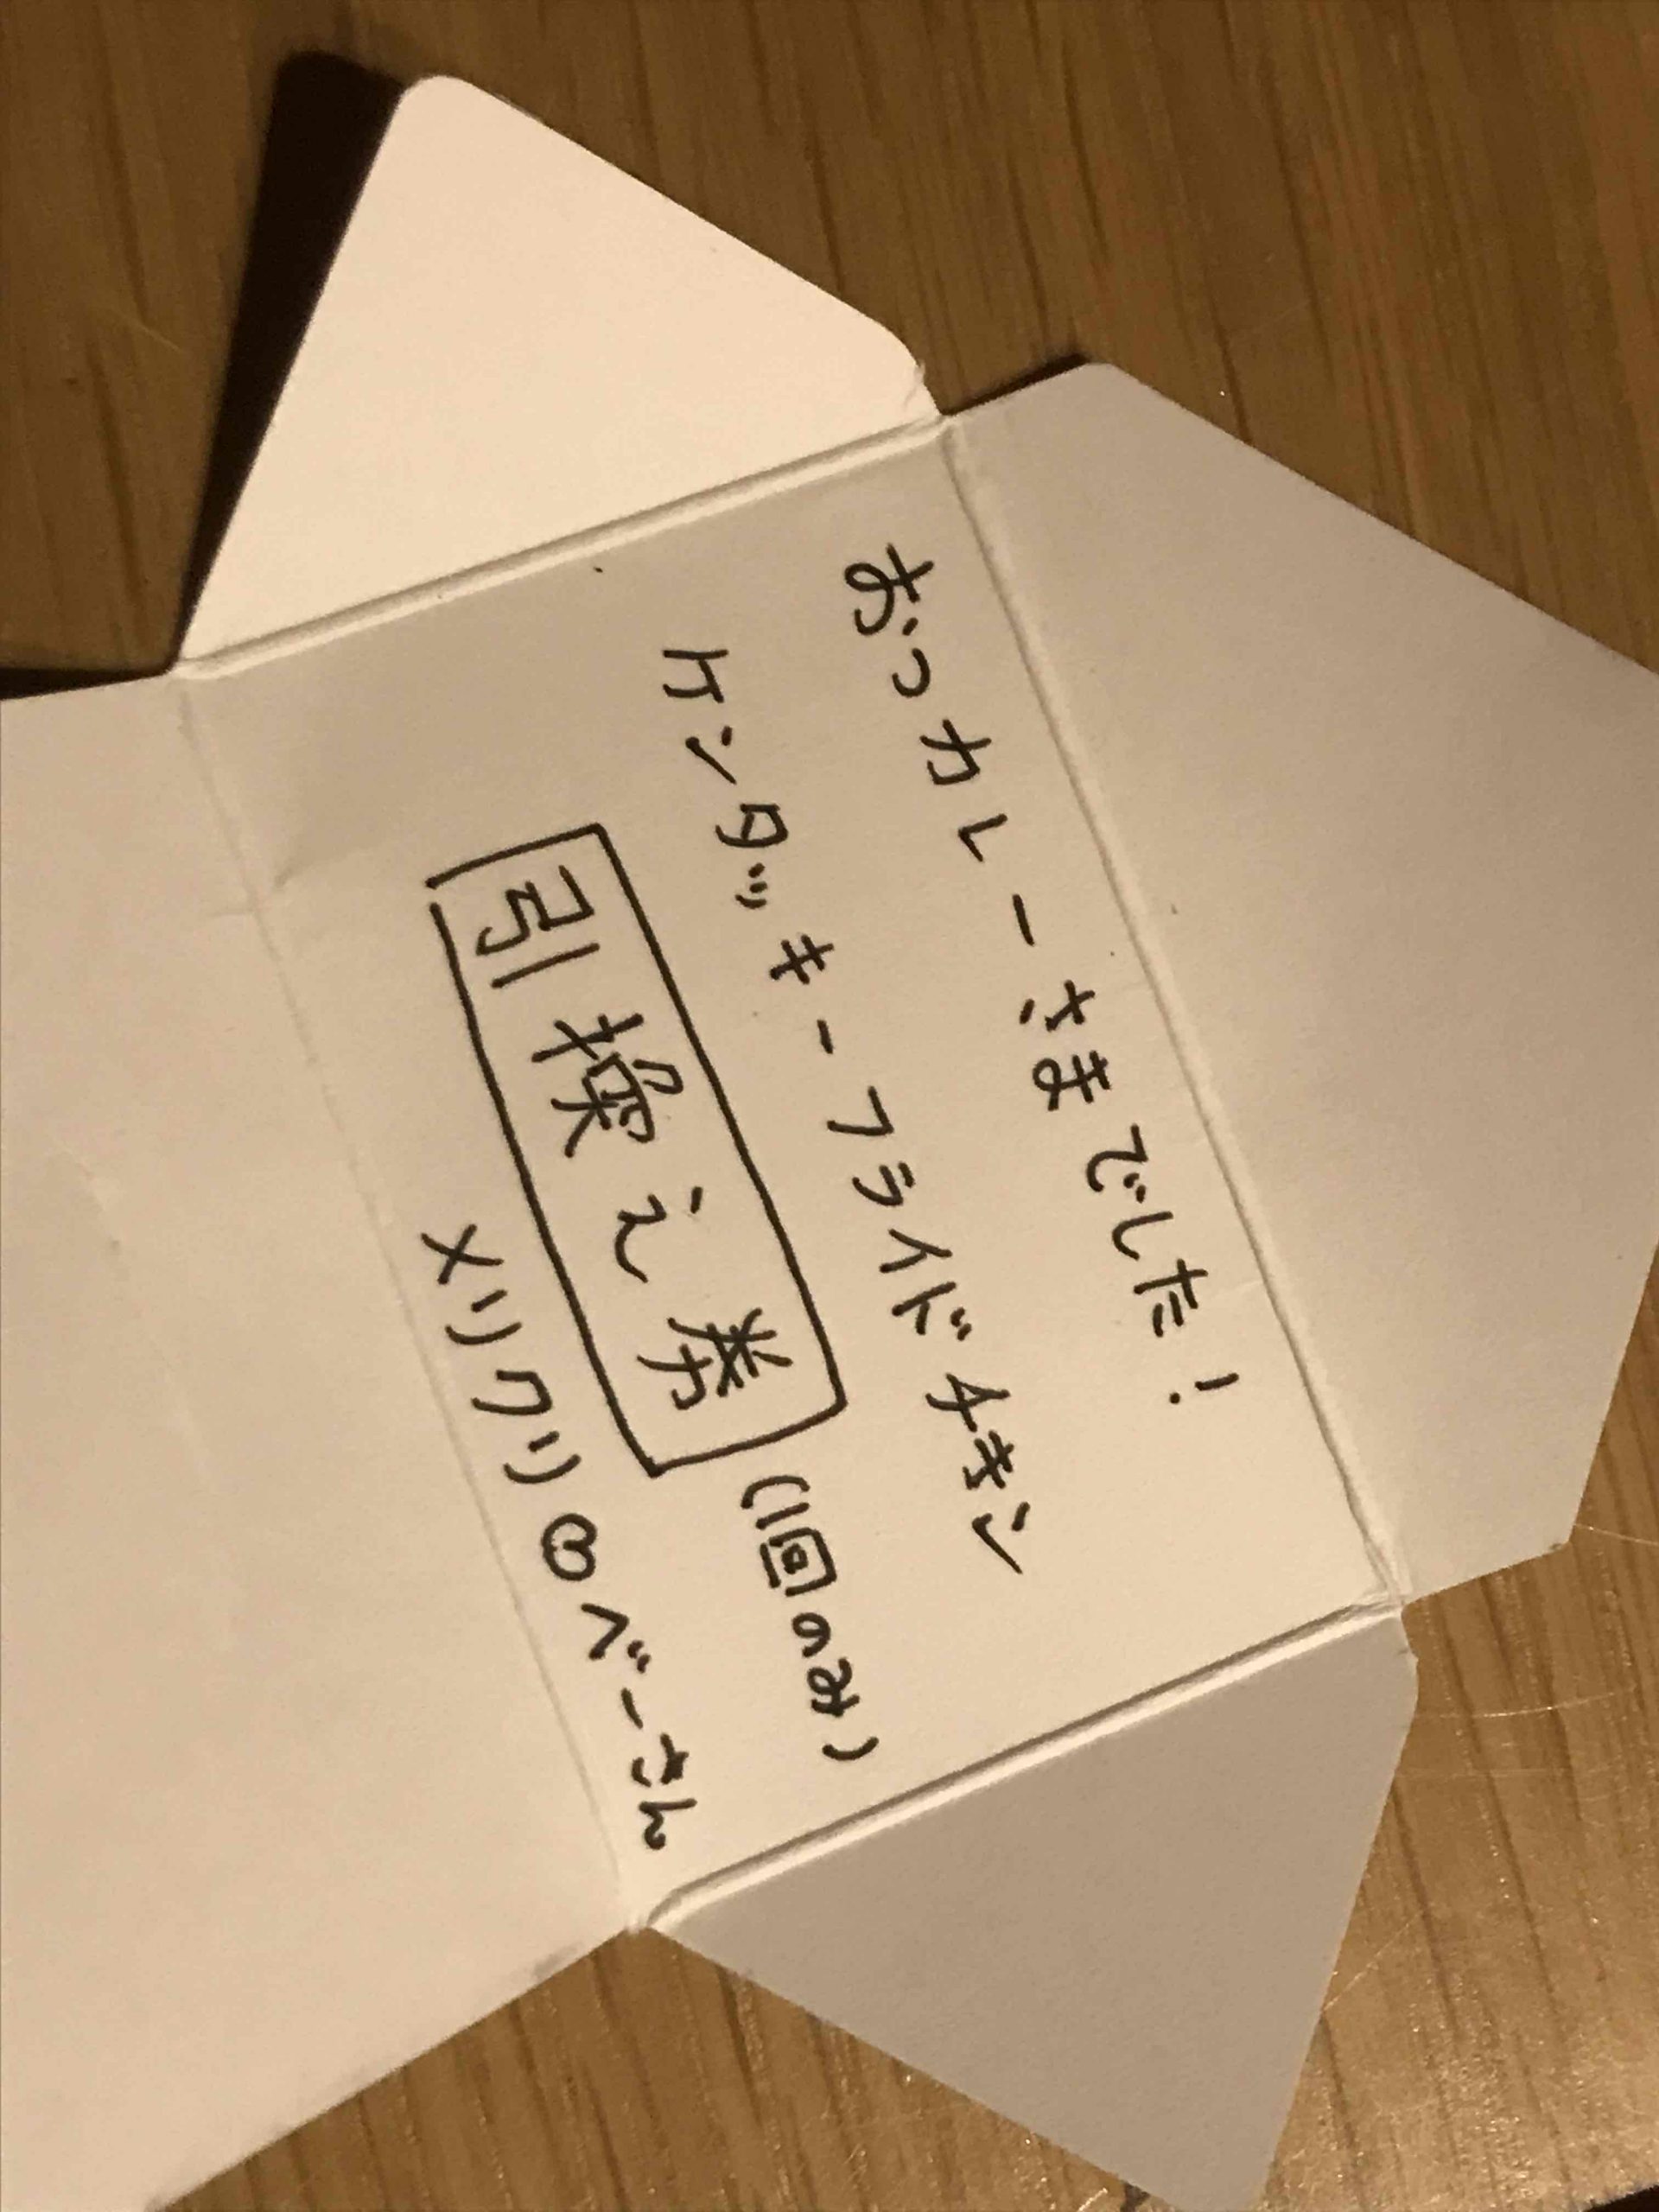 おつカレーさまでした！
ケンタッキーフライドチキン
引換え券 (1回のみ)
メリクリのベーさん